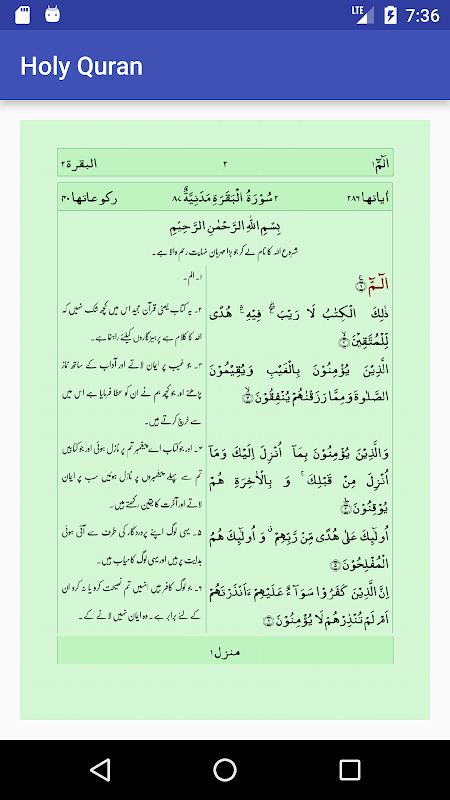 LTE 7:36
Holy Quran
الٓمّٓ ۱
۲
البقرة ۲
اٰیاتها ۲۸۶
۲ سُوْرَةُ الْبَقَرَةِ مَدَنِیَّةٌ ۸۷
رکوعاتها ۴۰
بِسْمِ اللّٰهِ الرَّحْمٰنِ الرَّحِیْمِ
شروع اللہ کا نام لے کر جو بڑا مہربان نہایت رحم والا ہے۔
الٓـمّٓ ۚ ﴿۱﴾
ذٰلِكَ الْكِتٰبُ لَا رَیْبَ ۛ فِیْهِ ۛ هُدًی
لِّلْمُتَّقِیْنَ ﴿۲﴾
الَّذِیْنَ یُؤْمِنُوْنَ بِالْغَیْبِ وَیُقِیْمُوْنَ
الصَّلٰوةَ وَمِمَّا رَزَقْنٰهُمْ یُنْفِقُوْنَ ﴿۳﴾
وَالَّذِیْنَ یُؤْمِنُوْنَ بِمَاۤ اُنْزِلَ اِلَیْكَ وَمَاۤ
اُنْزِلَ مِنْ قَبْلِكَ ۚ وَ بِالْاٰخِرَةِ هُمْ
یُوْقِنُوْنَ ﴿۴﴾
اُولٰٓىِٕكَ عَلٰی هُدًی مِّنْ رَّبِّهِمْ ۗ وَ اُولٰٓىِٕكَ هُمُ
الْمُفْلِحُوْنَ ﴿۵﴾
اِنَّ الَّذِیْنَ كَفَرُوْا سَوَآءٌ عَلَیْهِمْ ءَاَنْذَرْتَهُمْ
اَمْ لَمْ تُنْذِرْهُمْ لَا یُؤْمِنُوْنَ ﴿۶﴾
۱۔ الم۔
۲۔ یہ کتاب یعنی قرآن مجید اس میں کچھ شک نہیں کہ
اللہ کا کلام ہے پرہیزگاروں کیلئے راہنما ہے۔
۳۔ جو غیب پر ایمان لاتے اور آداب کے ساتھ نماز
پڑھتے اور جو کچھ ہم نے ان کو عطا فرمایا ہے اس میں
سے خرچ کرتے ہیں۔
۴۔ اور جو کتاب اے پیغمبر تم پر نازل ہوئی اور جو کتابیں
تم سے پہلے پیغمبروں پر نازل ہوئیں سب پر ایمان
لاتے اور آخرت کا یقین رکھتے ہیں۔
۵۔ یہی لوگ اپنے پروردگار کی طرف سے آئی ہوئی
ہدایت پر ہیں اور یہی لوگ کامیاب ہیں۔
۶۔ جو لوگ کافر ہیں انہیں تم نصیحت کرو یا نہ کرو ان
کے لئے برابر ہے۔ وہ ایمان نہیں لانے کے۔
منزل ۱